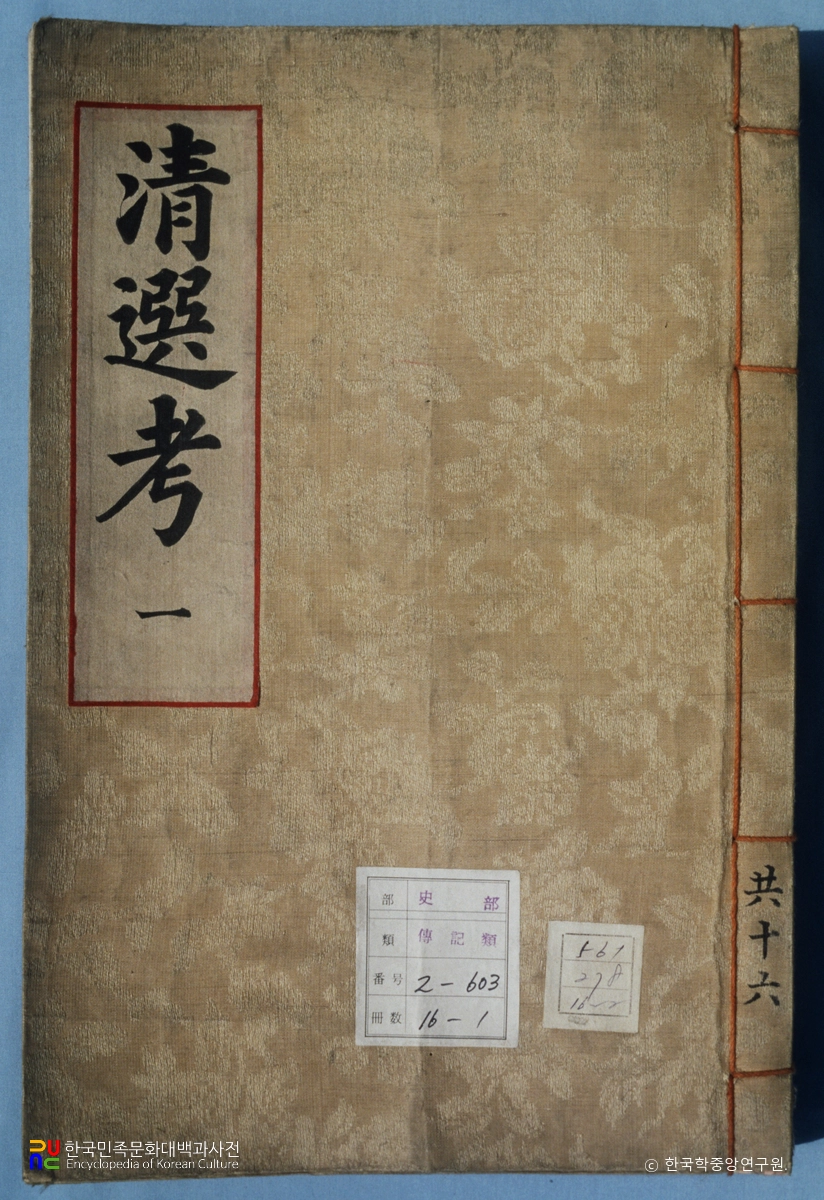 清選考
一
共十六
部 史部
類 傳記類
番号 2-603
冊数 16-1
561
278
한국민족문화대백과사전
Encyclopedia of Korean Culture
© 한국학중앙연구원.